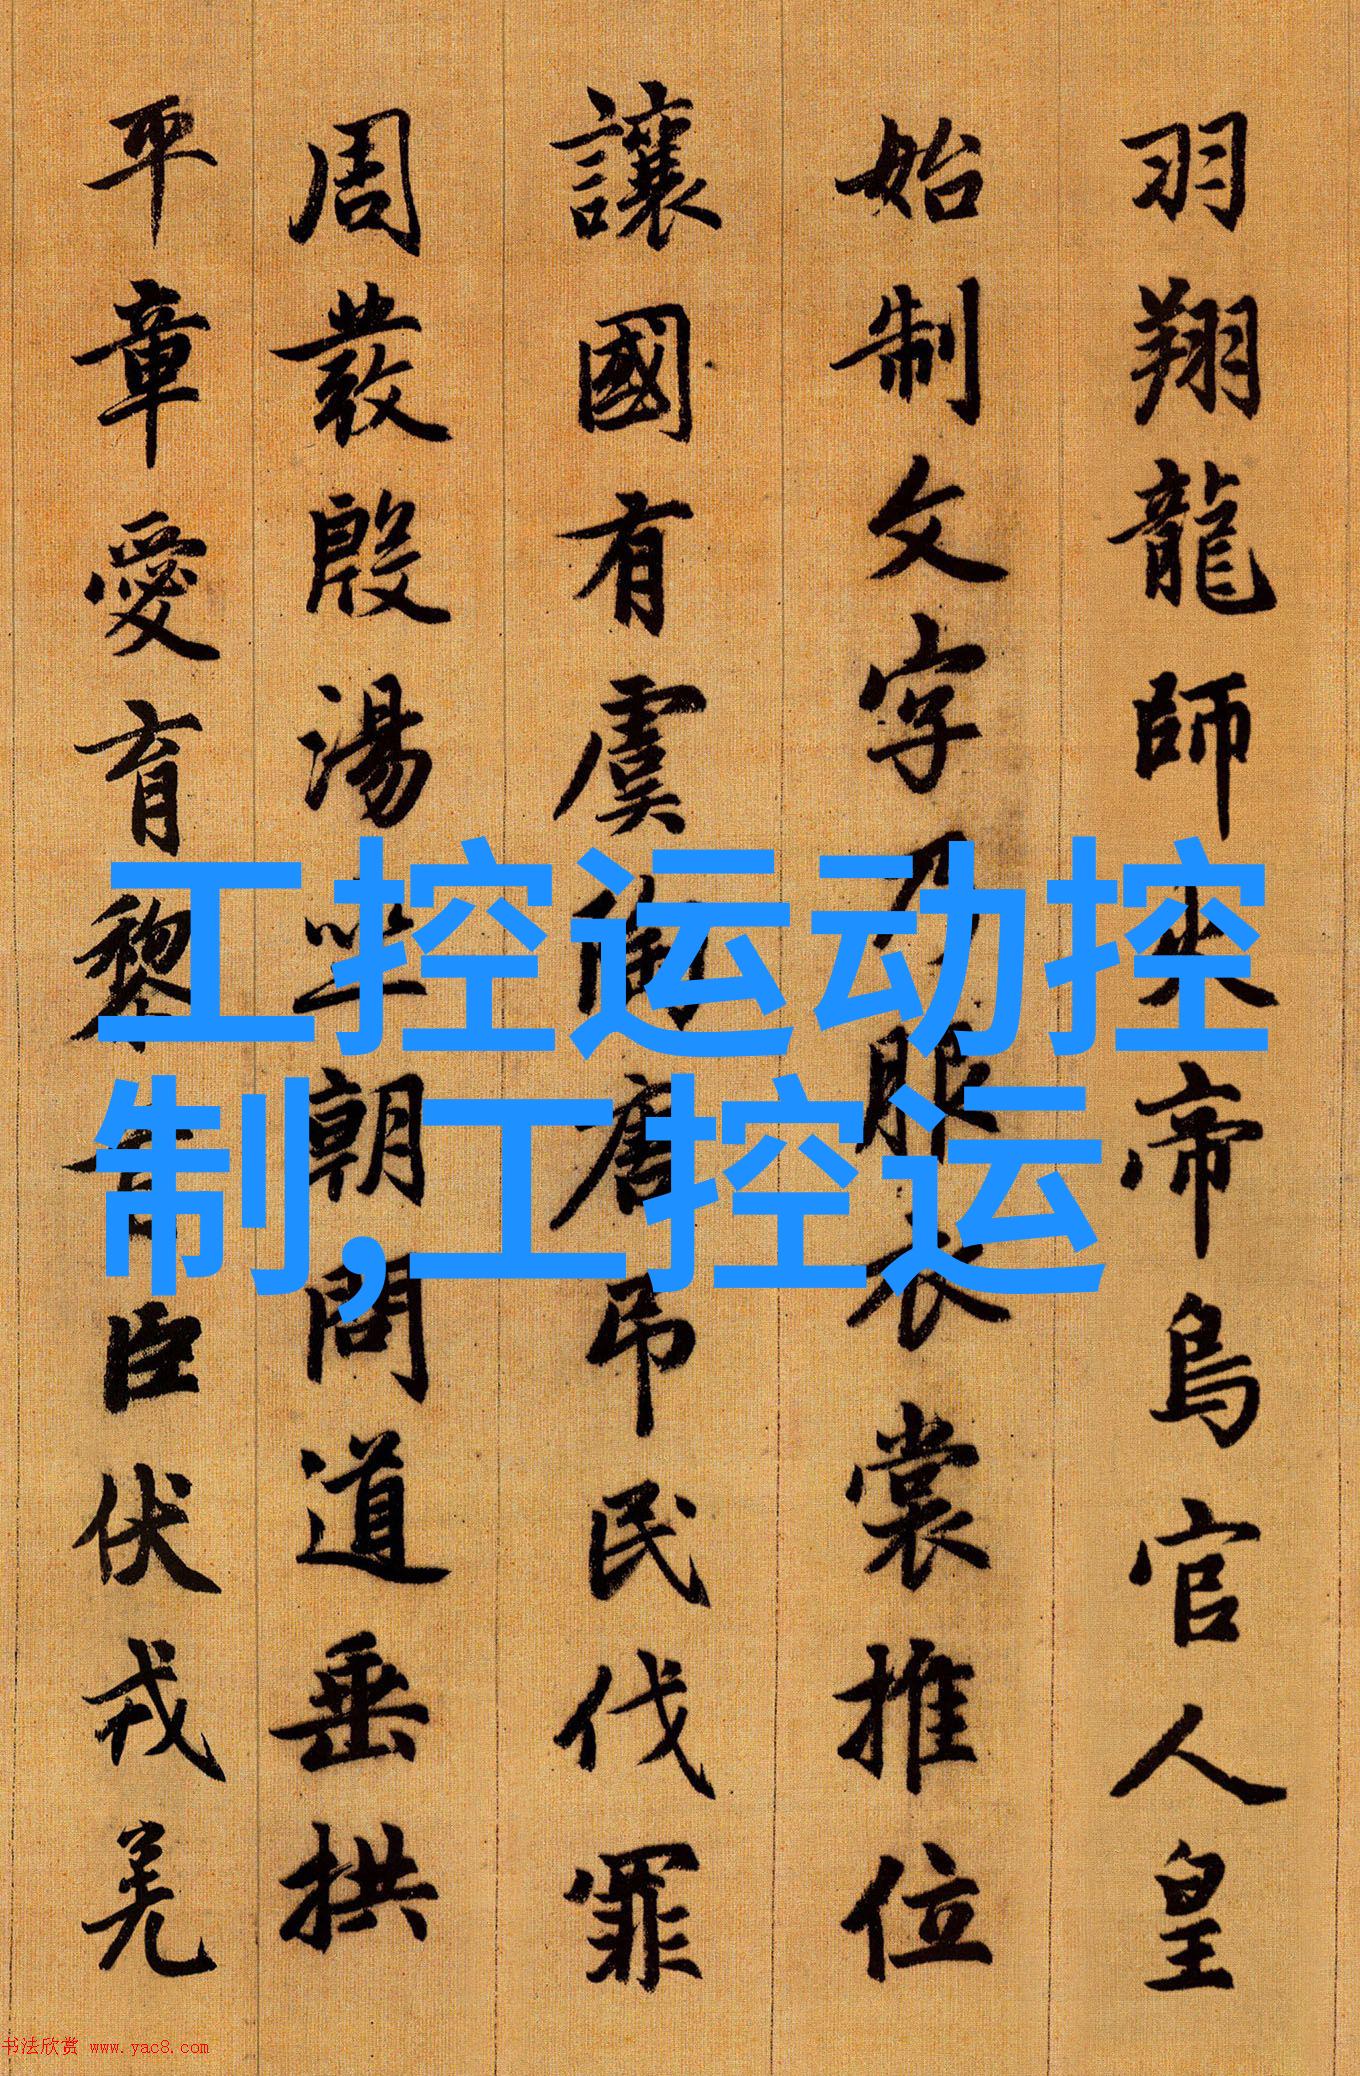 羽翔龍師火帝鳥官人皇
始制文字乃服衣裳推位
讓國有虞陶唐吊民伐罪
周發殷湯坐朝問道垂拱
平章愛育黎首臣伏戎羌
工控运动控
制,工控运
书法欣赏 www.yac8.com